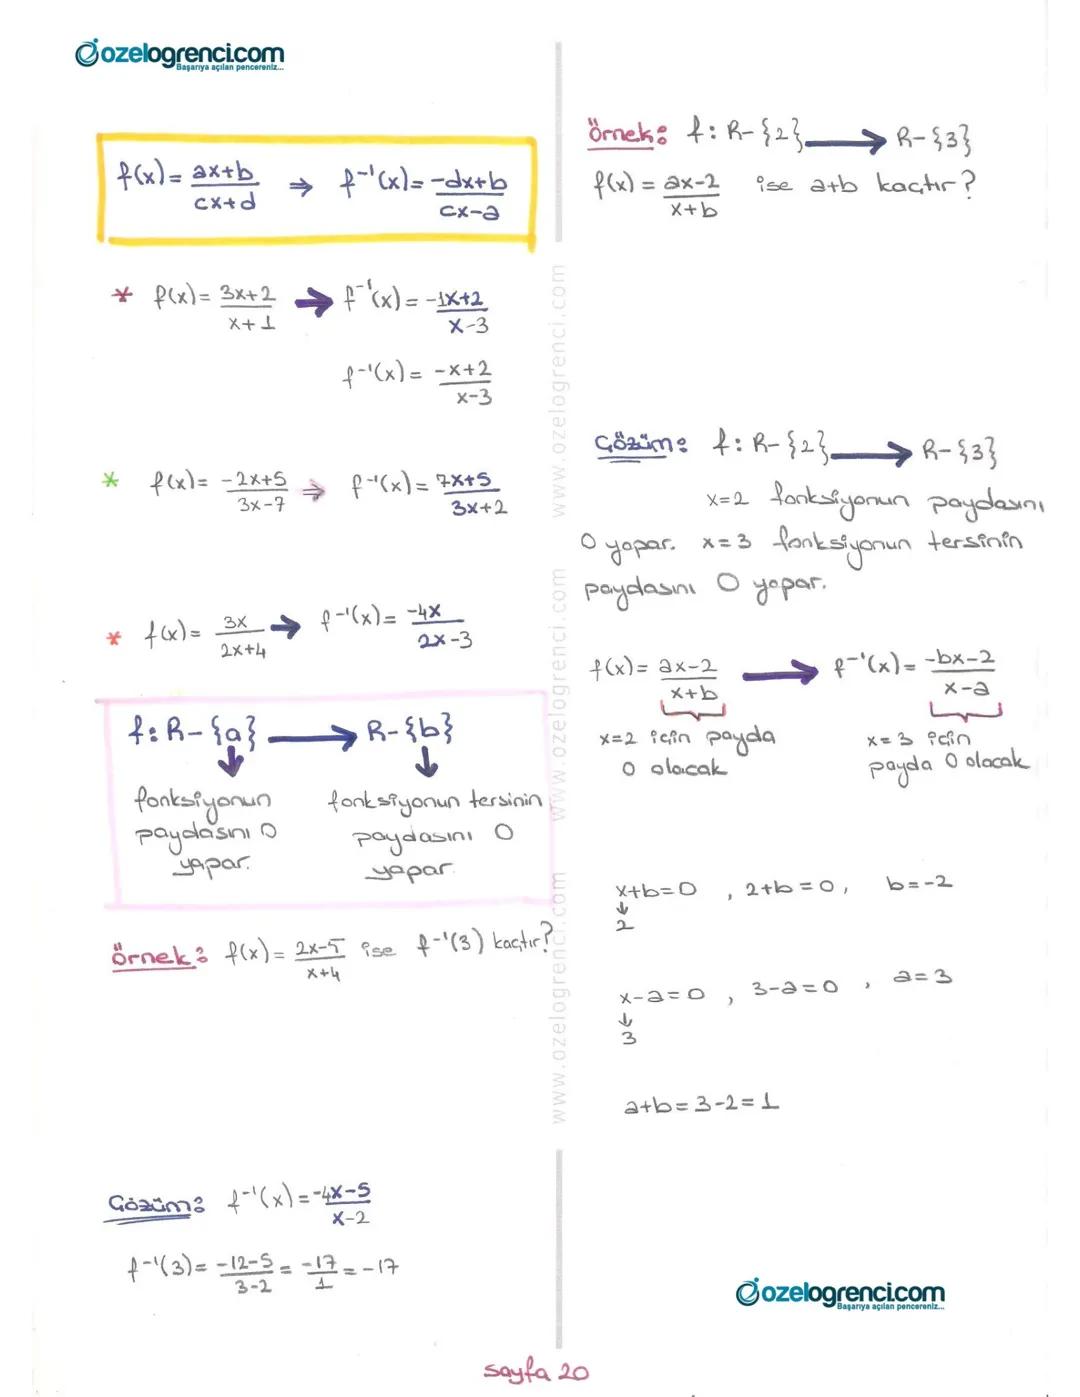 ozelogrenci.com
Başarıya açılan pencereniz...
f(x) = ax+b / cx+d ⇒ f⁻¹(x) = -dx+b / cx-a
* f(x) = 3x+2 / x+1 → f⁻¹(x) = -1x+2 / x-3
f⁻¹(x) = -x+2 / x-3
* f(x) = -2x+5 / 3x-7 ⇒ f⁻¹(x) = 7x+5 / 3x+2
* f(x) = 3x / 2x+4 → f⁻¹(x) = -4x / 2x-3
f: R-{a} → R-{b}
fonksiyonun
paydasını 0
yapar.
fonksiyonun tersinin
paydasını 0
yapar.
Örnek: f(x) = 2x-5 / x+4 ise f⁻¹(3) kaçtır?
Çözüm: f⁻¹(x) = -4x-5 / x-2
f⁻¹(3) = -12-5 / 3-2 = -17 / 1 = -17
www.ozelogrenci.com www.ozelogrenci.com www.ozelogrenci.com
Örnek: f: R-{2} → R-{3}
f(x) = ax-2 / x+b ise a+b kaçtır?
Çözüm: f: R-{2} → R-{3}
x=2 fonksiyonun paydasını
0 yapar. x=3 fonksiyonun tersinin
paydasını 0 yapar.
f(x) = ax-2 / x+b → f⁻¹(x) = -bx-2 / x-a
x=2 için payda
0 olacak
x=3 için
payda 0 olacak
x+b=0 , 2+b=0 , b=-2
↓
2
x-a=0 , 3-a=0 , a=3
↓
3
a+b=3-2=1
ozelogrenci.com
Başarıya açılan pencereniz...
sayfa 20